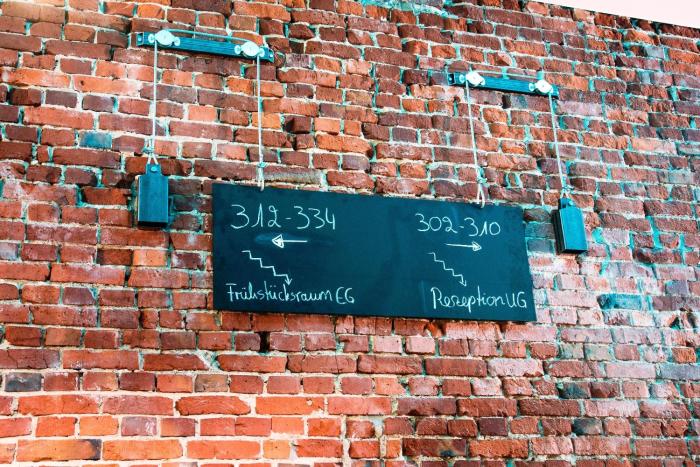 312-334
←
Frühstücksraum EG
302-310
→
Rezeption UG